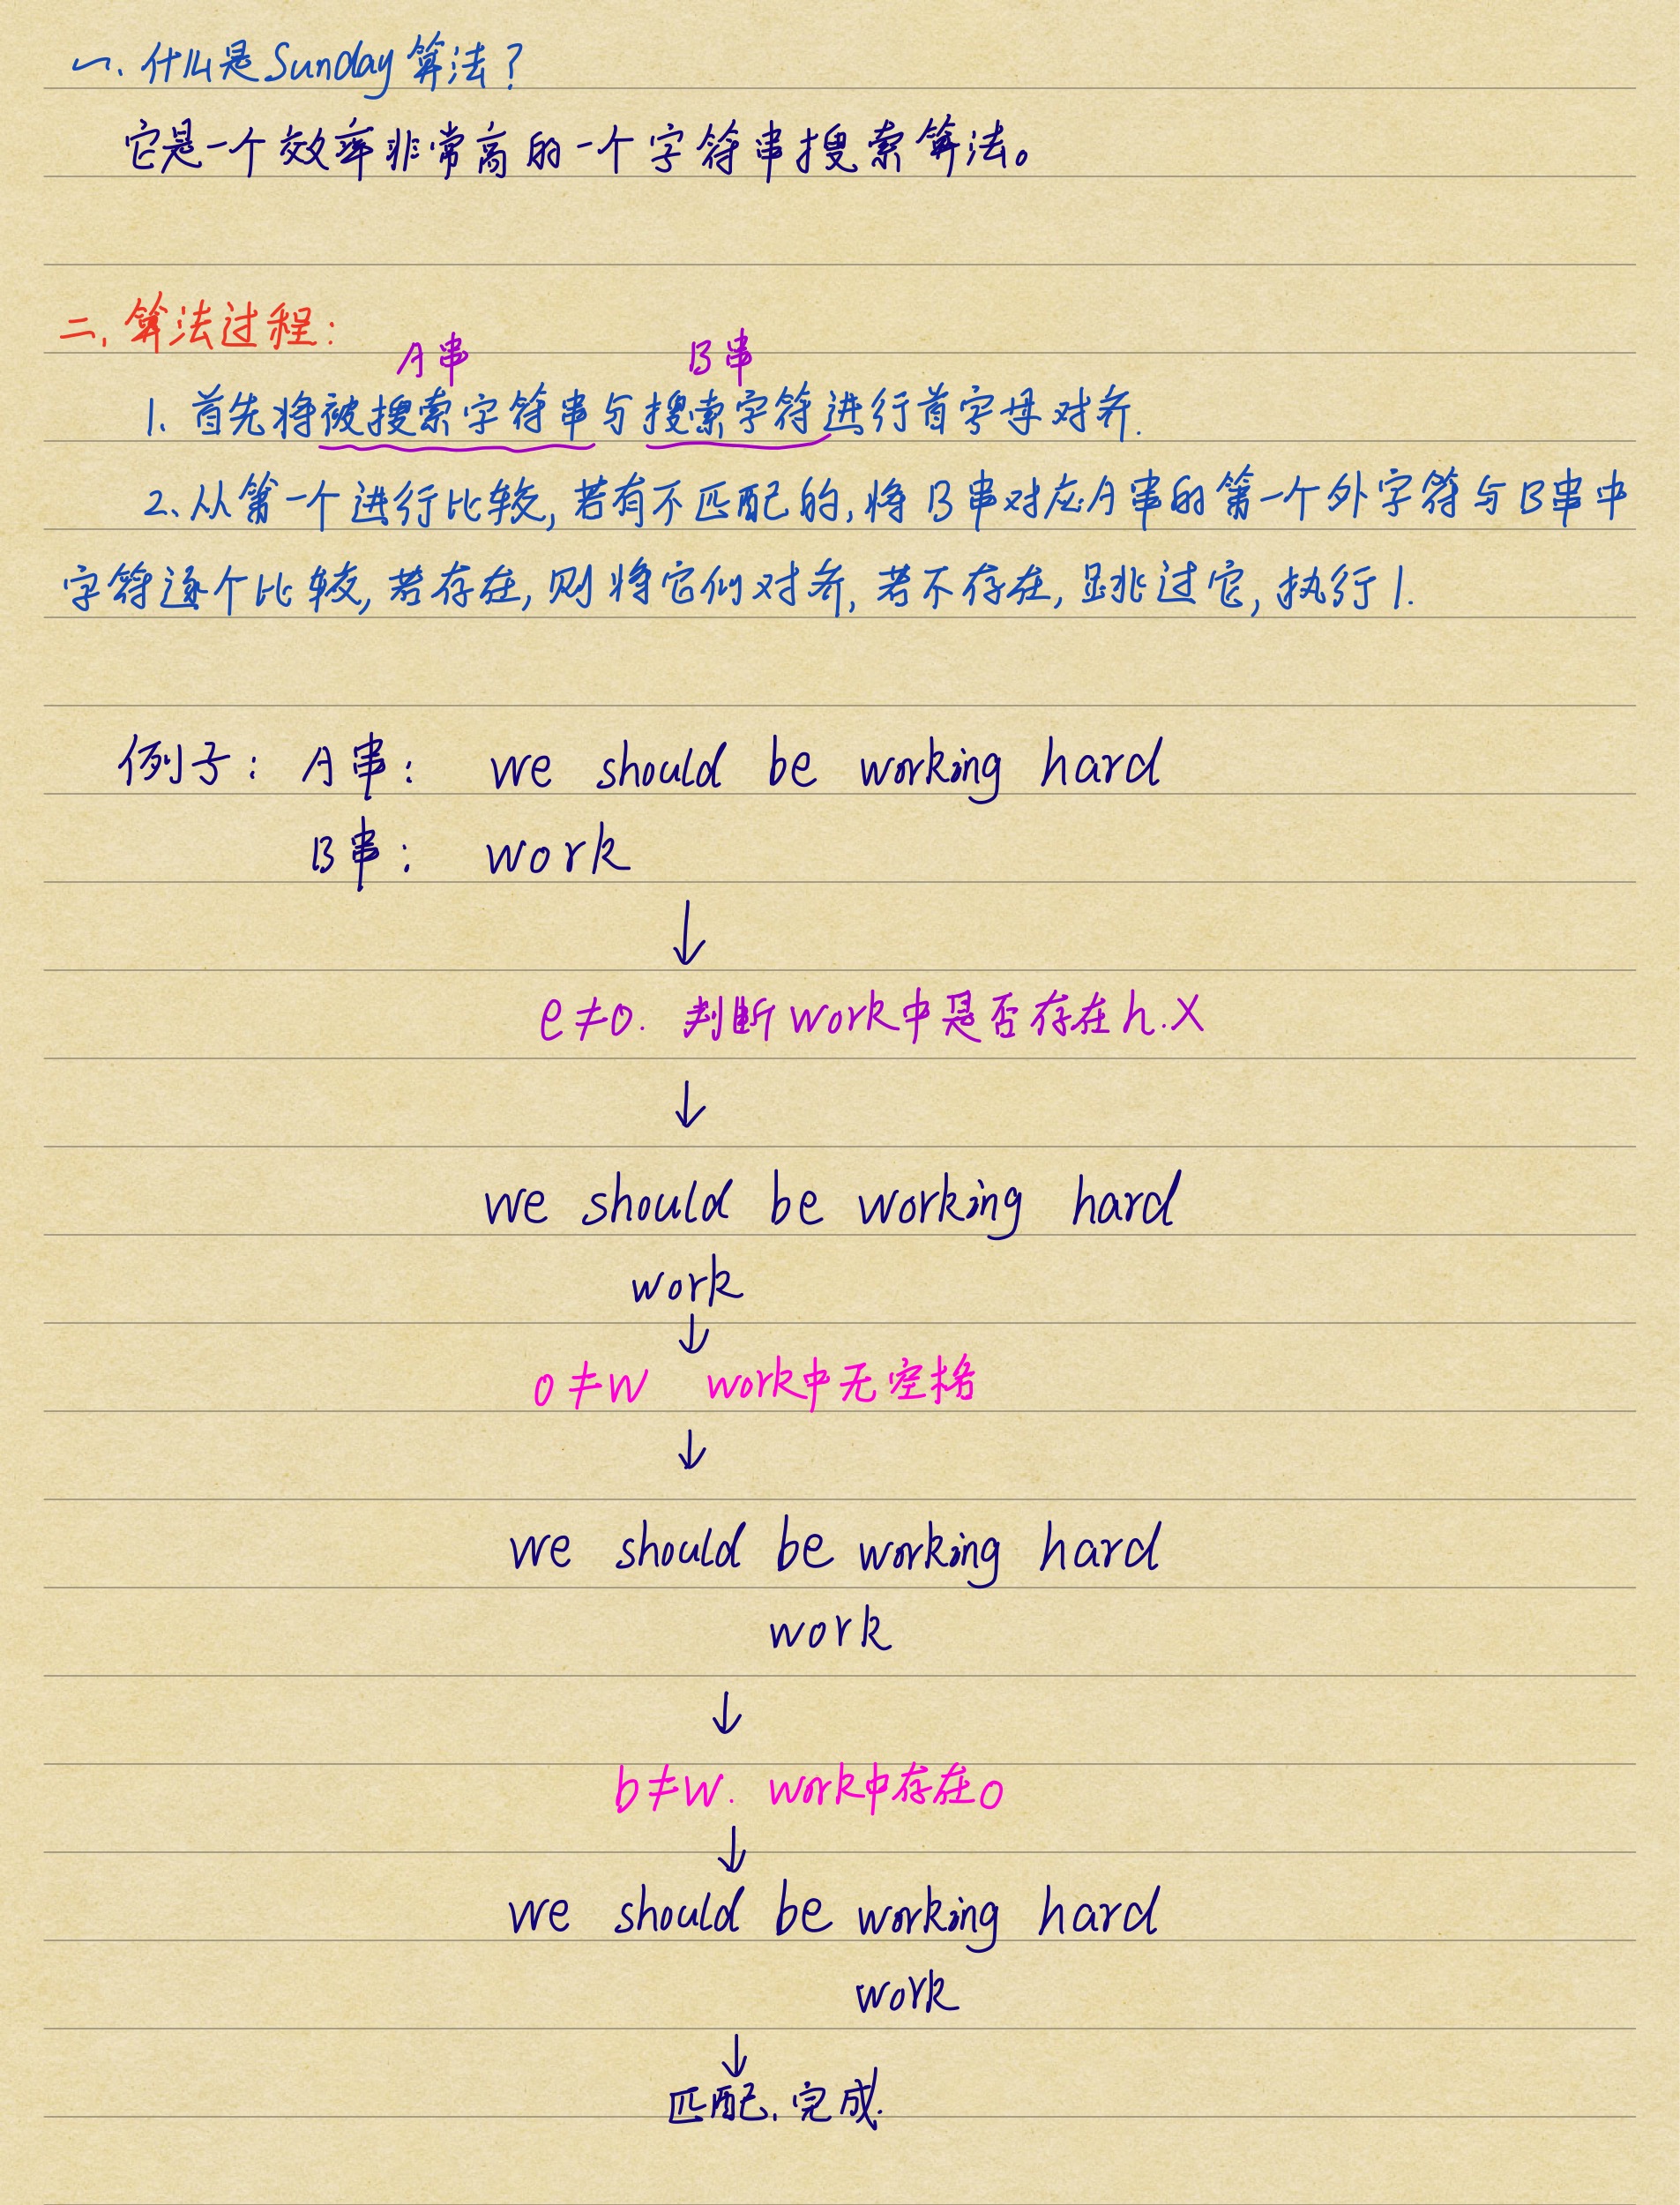 一、什么是Sunday算法?
它是一个效率非常高的一个字符串搜索算法。
二、算法过程:
A串 B串
1. 首先将被搜索字符串与搜索字符进行首字母对齐.
2、从第一个进行比较, 若有不匹配的, 将B串对应A串的第一个外字符与B串中
字符逐个比较, 若存在, 则将它们对齐, 若不存在, 跳过它, 执行1.
例子: A串: we should be working hard
B串: work
↓
e≠o. 判断work中是否存在h.X
↓
we should be working hard
work
↓
o≠w work中无空格
↓
we should be working hard
work
↓
b≠w. work中存在o
↓
we should be working hard
work
↓
匹配, 完成.